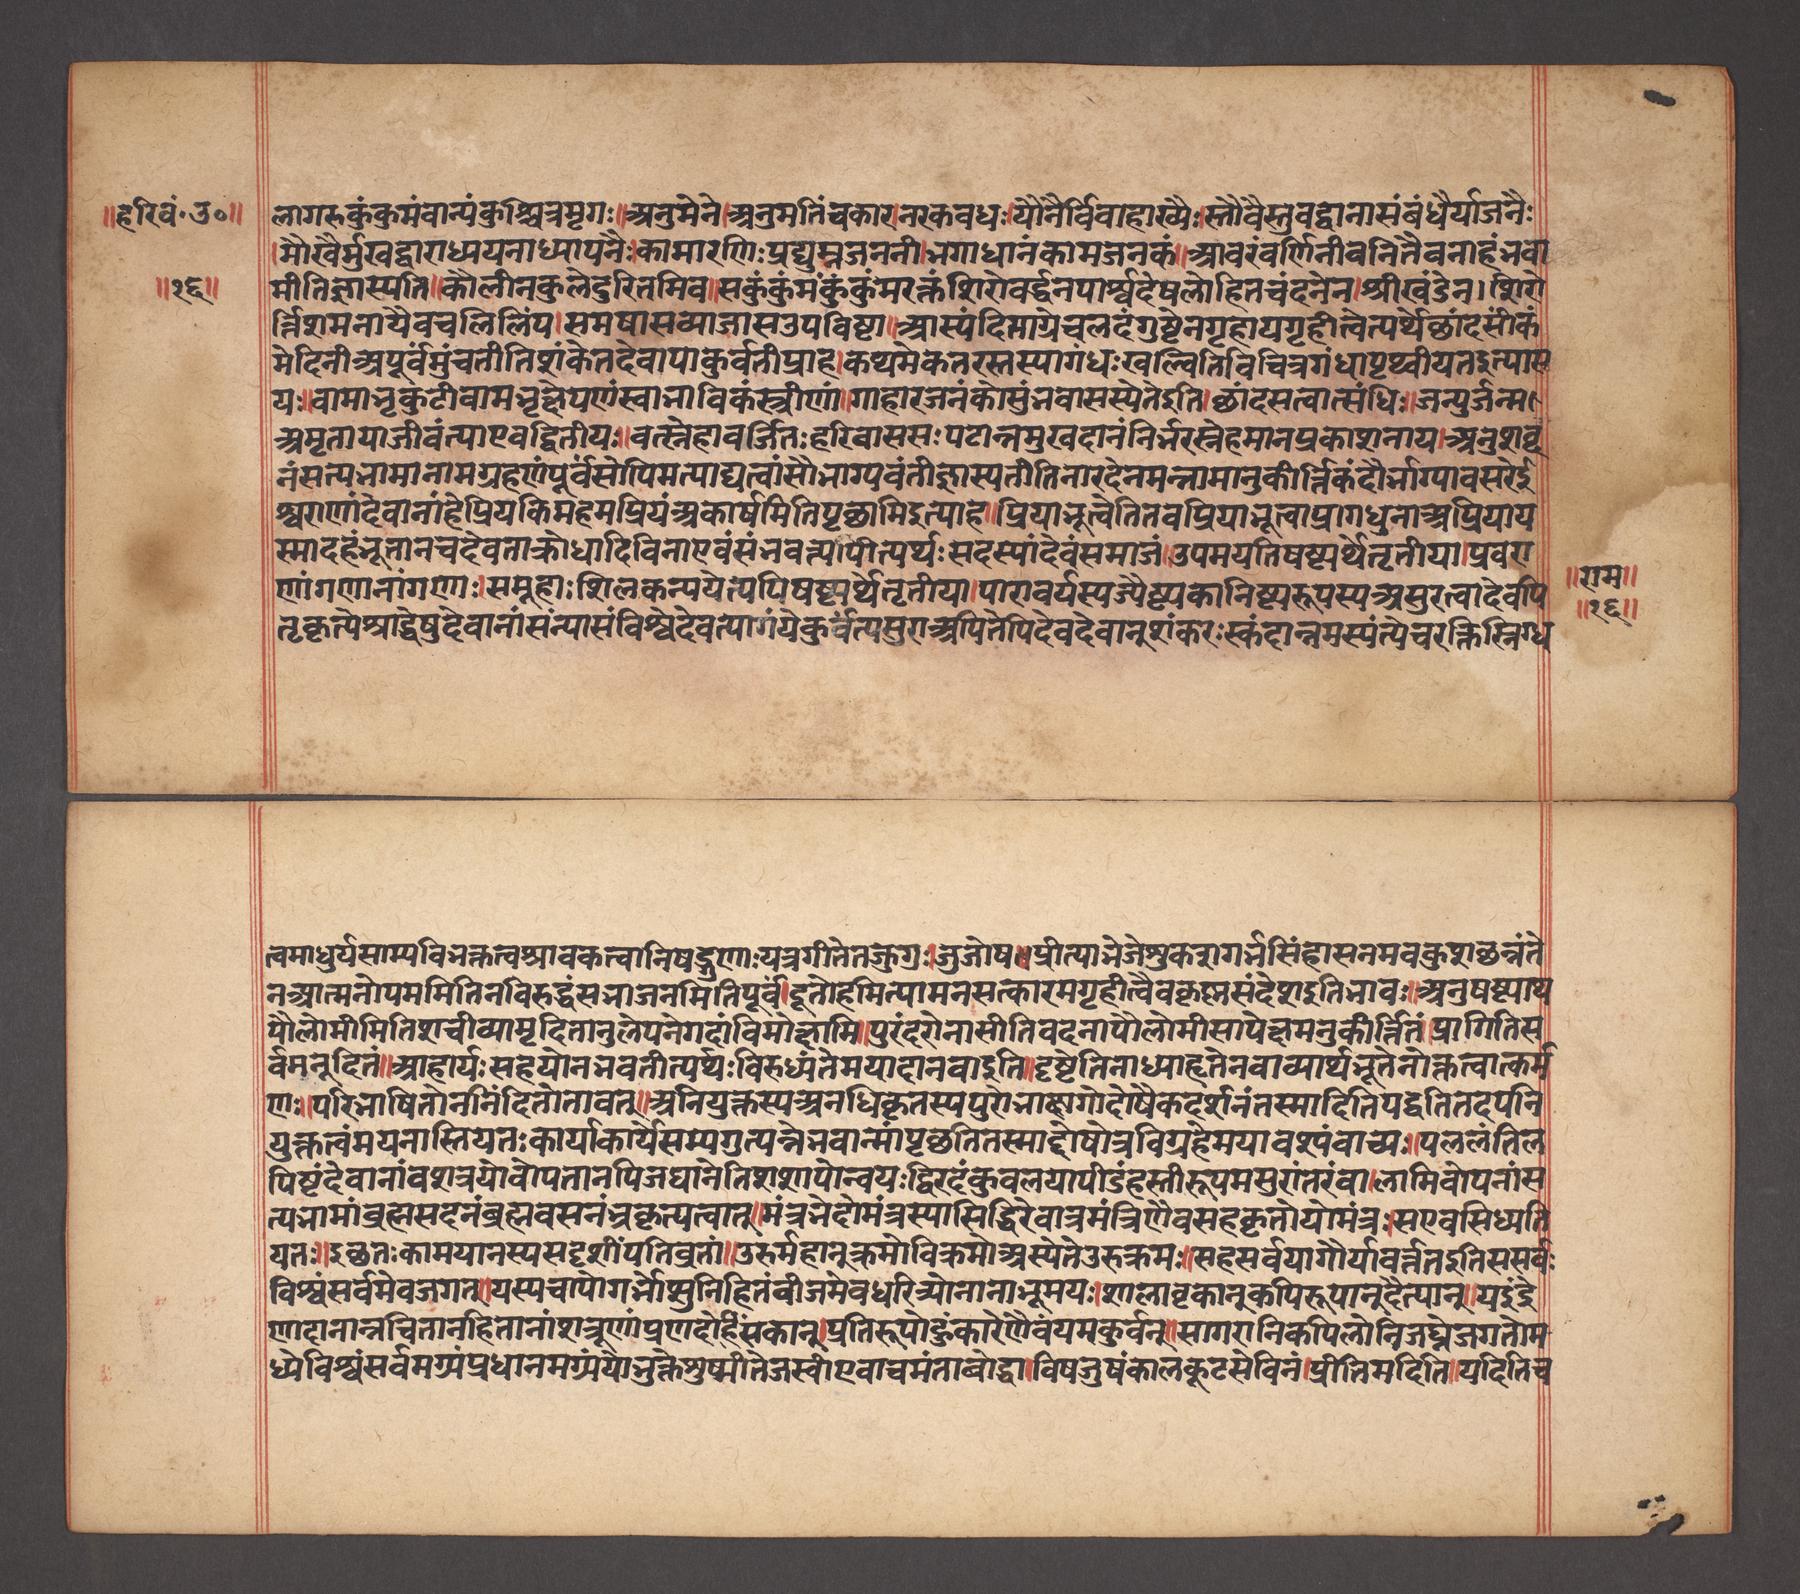 ॥हरिवं॰उ०॥
॥१६॥
लागरुकुंकुमंवान्यंकुश्चित्रमृगः॥अनुमेने।अनुमतिंचकार।नरकवधः।यौनैर्विवाहाख्यैः।स्तौवैस्तुवद्वानासंबंधैर्याजनैः
।मौखैर्मुखद्वाराध्ययनाध्यापनैः।कामारणिःप्रद्युम्नजननी।भगाधानंकामजनकं॥आवरंवर्णिनीवनितैवनाहंभवा
मीतिज्ञास्यति॥कौलीनकुलेदुरितमिव॥सकुंकुंमंकुंकुंमरक्तंशिरोवर्द्धनपार्श्वदेषलोहितचंदनेन।श्रीखंडेन।शिरो
र्न्निशमनायैवचलिलिंप।समषासव्याजासउपविष्टा॥आस्पंदिमाग्रेचलदंगुष्टेनगृहायगृहीत्वेत्यर्थेछांदसींकं
मेदिनीअपूर्वंमुंचतीतिशंकेतदेवापाकुर्वतीप्राह।कथमेकतरस्तस्यागंधःखल्वितिविचित्रगंधापृथ्वीयतइत्यास
यः॥वामाभृकुटीवामभ्रूक्षेपणंस्वाभाविकंस्त्रीणां॥गाहारजनंकोसुंभवासस्येतेइति।छांदसत्वात्संधिः॥जन्युर्जन्म।
अमृतायाजीवंत्याएवद्वितीयः॥वत्स्नेहावर्जितःहरिवाससःपटान्तमुखदानंनिर्भरस्नेहमानप्रकाशनाय।अनुशब्दू
नंसत्यभामानामग्रहणंपूर्वंसोपिमत्याद्यत्वांसौभाग्यवंतीज्ञास्यतीतिनारदेनमन्नामानुकीर्त्तिकंदौर्भाग्यावसरेई
श्वराणांदेवानांहेप्रियकिमहमप्रियंअकार्षमितिपृछामिइत्याह॥प्रियाभूत्वेतितवप्रियाभूत्वाप्रागधुनाअप्रियाय
स्मादहंभूतानचदेवताक्रोधादिविनाएवंसंभवत्यापीत्यर्थःसदस्यांदेवंसमाजं।उपमयतिषष्ट्यर्थेतृतीया।प्रवरा
णांगणानांगणाः।समूहाःशिलकन्ययेत्यपिषष्ट्यर्थेतृतीया।पारावर्यस्यज्यैष्ट्यकानिष्ट्यरूपस्यअसुरत्वादेवपि
तृकृत्येश्राद्धेषुदेवानांसंन्यासंविश्वेदेवत्यागंयेकुर्वंत्यसुराअपितेपिदेवदेवानुशंकरःस्कंदान्नमस्यंत्येचरक्तिस्निग्ध
॥राम॥
॥१६॥
त्वमाधुर्यसाम्यविभक्तत्वश्रावकत्वानिषड्गुणाःयत्रगीतेतज्जगुः।जुजोष॥प्रीत्याभेजेशुकरागर्भंसिंहासनमवकुशछन्नंते
नआत्मनोपममितिनविरुद्धंसभाजनमितिपूर्वं।दूतोहमित्यामनसत्कारमगृहीत्वैवकृष्णसंदेशइतिभावः॥अनुषष्ट्याथ
पौलोमीमितिशचीव्यामृदितानुलेपनेगदांविमोक्ष्यामि॥पुरंदरोनासीतिवदनापौलोमीसापेक्षमनुकीर्त्तितं।प्रागितिस
र्वमनूदितं॥आहार्यःसहयोनभवतीत्यर्थःविरुध्यंतेमयादानवाइति॥दृष्टेतिनाध्याहृतेनवाव्यार्थभूतेनोक्तत्वात्कर्म
णः॥परिभाषितोननिंदितोतावत्॥अनियुक्तस्यअनधिकृतस्यपुरोभाक्षागोदोषैकदर्शनंतस्मादितिपद्वतितदपनि
युक्तत्वंमयनास्तियतःकार्याकार्येसम्यगुत्पन्नेभवान्मांपृछतितस्माद्दोषोत्रविग्रहेमयावश्यंवाच्यः॥पललंतिल
पिष्टंदेवानांवशत्रयोवोपतानपिजघानेतिशशापोन्वयःद्विरदंकुवलयापीडंहस्तीरूपमसुरांतेरंवा।लामिवोपनांस
त्यभामांब्रह्मसदनंब्रह्मवसनंत्रकृत्यत्वात्॥मंत्रभेदोमंत्रस्यासिद्धिरेवात्रमंत्रिणैवसहकृतोयोमंत्रःसएवसिध्यति
यतः॥इछतःकामयानस्यसदृशींपतिव्रतां॥उरुर्महानुक्रमोविक्रमोअस्येतेउरुक्रमः॥सहसर्वयागौर्यावर्त्ततइतिससर्वः
विश्वंसर्वमेवजगत्॥यस्यचापोगर्भोप्सुनिहितंवीजमेवधरित्र्योनानाभूमयः।शालावृकानुकपिरूपानुदैत्यानु॥यइंद्रे
णदानान्नचितानहितानांशत्रूणांप्रणदोहिंसकान्॥प्रतिरूपोहुंकारेणैवंयमकुर्वन्॥सागरानिकपिलोनिजघ्नेजगतोम
ध्येविश्वंसर्वमग्र्यंप्रधानमग्र्यंयोभुक्तेशुष्मीतेजस्वीएवाचमंताबोद्धा।विषजुषंकालकूटसेविनं।प्रीतिमदिति॥यदितिच